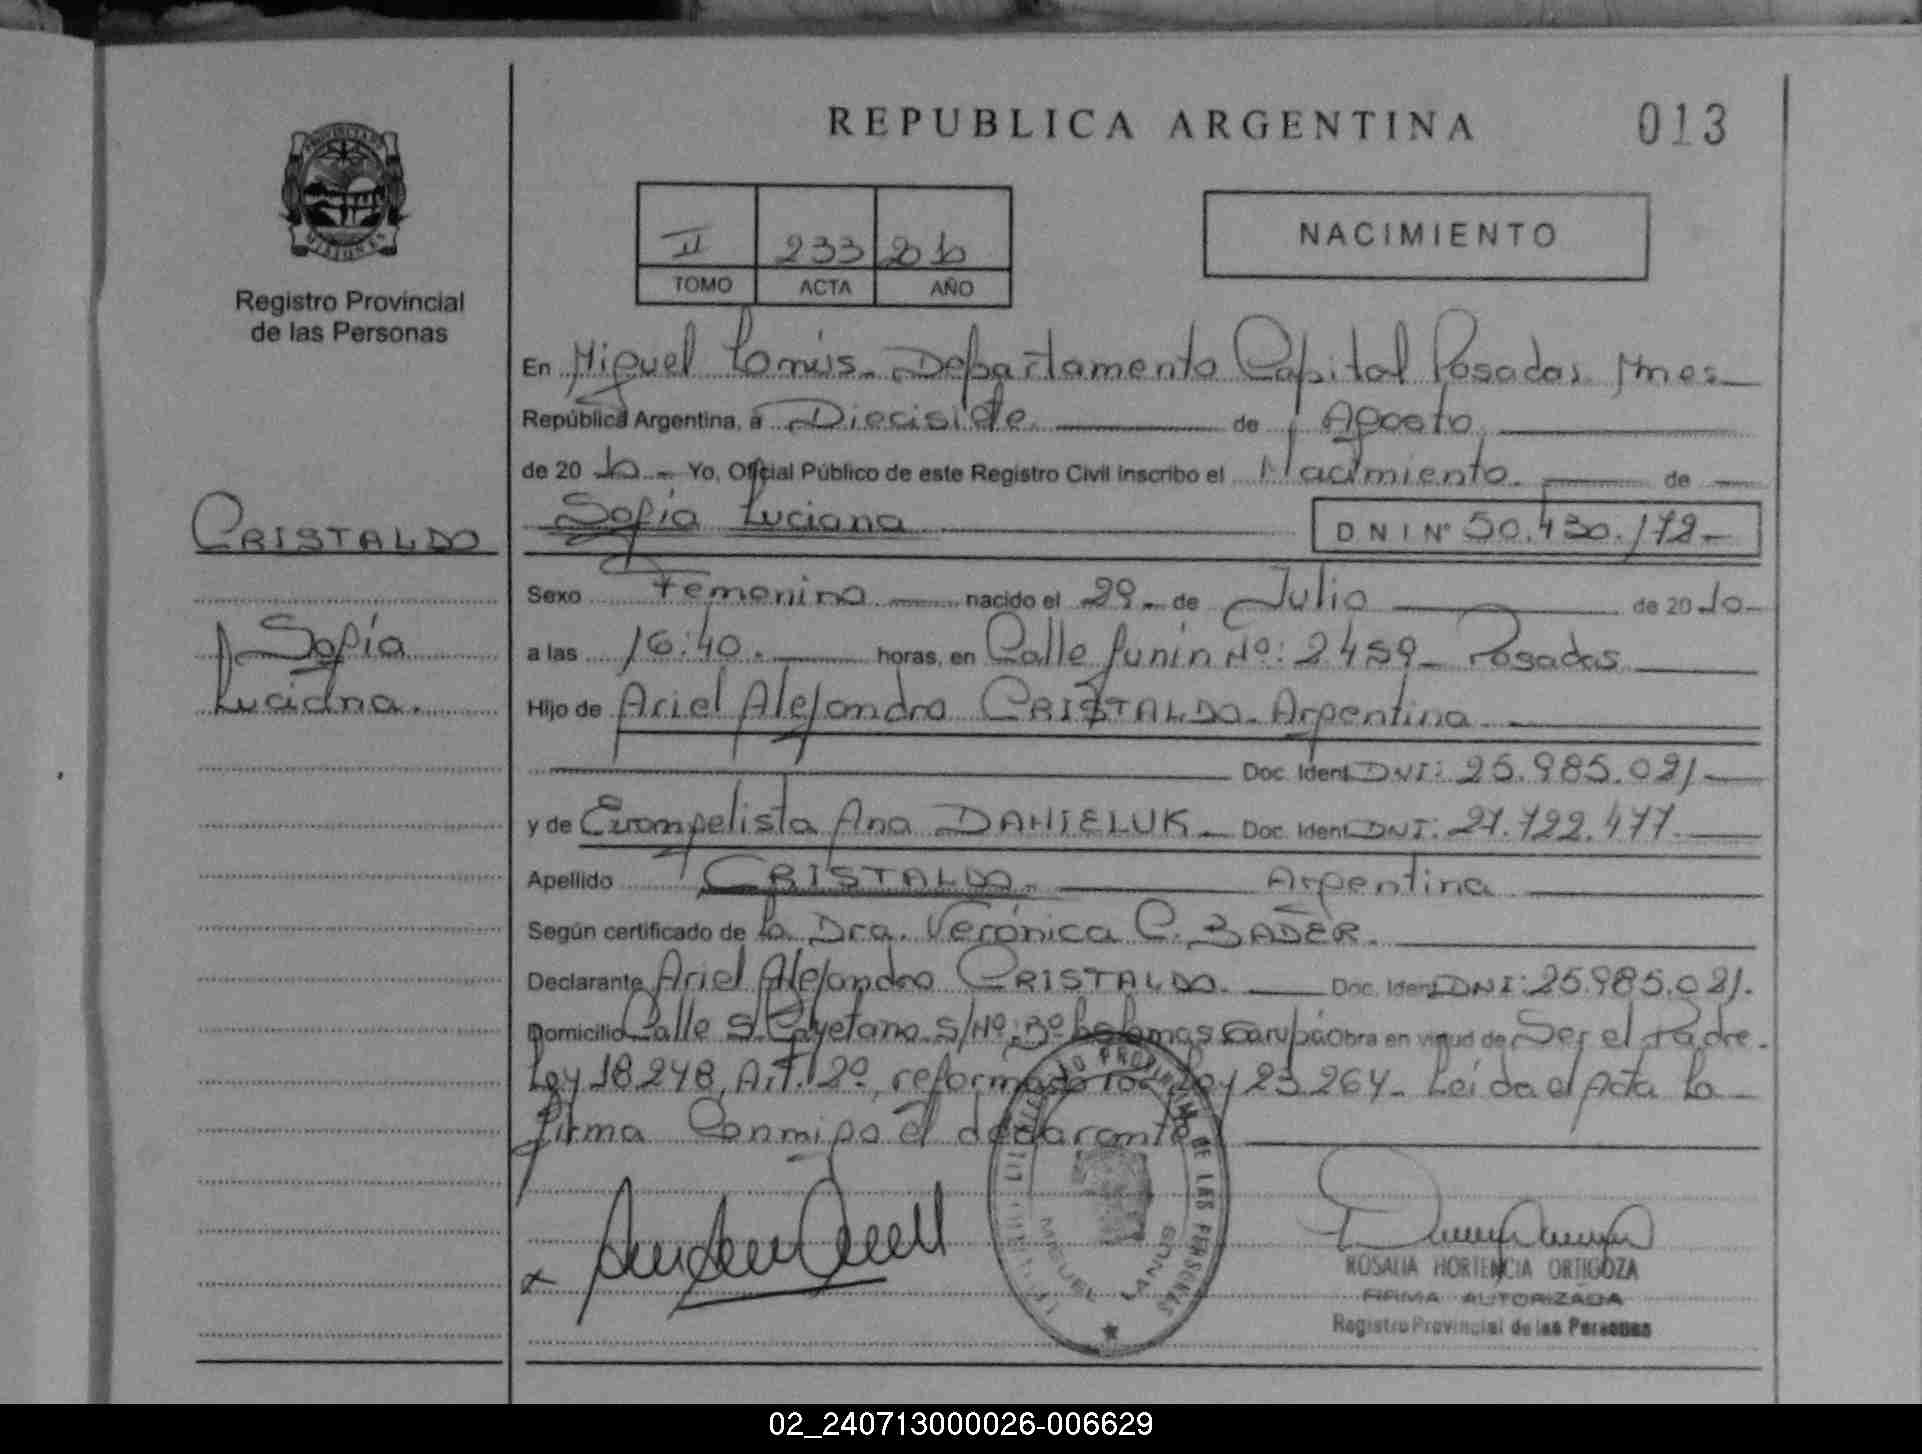 REPUBLICA ARGENTINA
013
PROVINCIA DE
MISIONES
Registro Provincial
de las Personas
II 233 2010
TOMO ACTA AÑO
NACIMIENTO
En Miguel Lanús. Departamento Capital Posadas Mnes
República Argentina, a Diecisiete de Agosto
de 20 10 - Yo, Oficial Público de este Registro Civil inscribo el Nacimiento. de
CRISTALDO
Sofía Luciana
D N I Nº 50.430.172-
Sexo Femenino nacido el 29 - de Julio de 20 10-
Sofía
Luciana.
a las 16:40. horas, en Calle Junín Nº: 2459 - Posadas
Hijo de Ariel Alejandro CRISTALDO - Argentina
Doc. Ident DNI: 25.985.021
y de Evangelista Ana DANIELUK - Doc. Ident DNI: 27.722.477.
Apellido CRISTALDO. Argentina
Según certificado de la Dra. Verónica C. BADER.
Declarante Ariel Alejandro CRISTALDO. Doc. Ident DNI: 25.985.021.
Domicilio Calle S. Cayetano S/Nº. Bº Las Lomas Garupá Obra en virtud de Ser el Padre.
Ley 18.248, Art. 2º, reformado por Ley 23.264 - Leída el Acta la
firma Conmigo el declarante
REGISTRO PROVINCIAL DE LAS PERSONAS
MIGUEL LANUS
x
ROSALIA HORTENCIA ORTIGOZA
FIRMA AUTORIZADA
Registro Provincial de las Personas
02_240713000026-006629